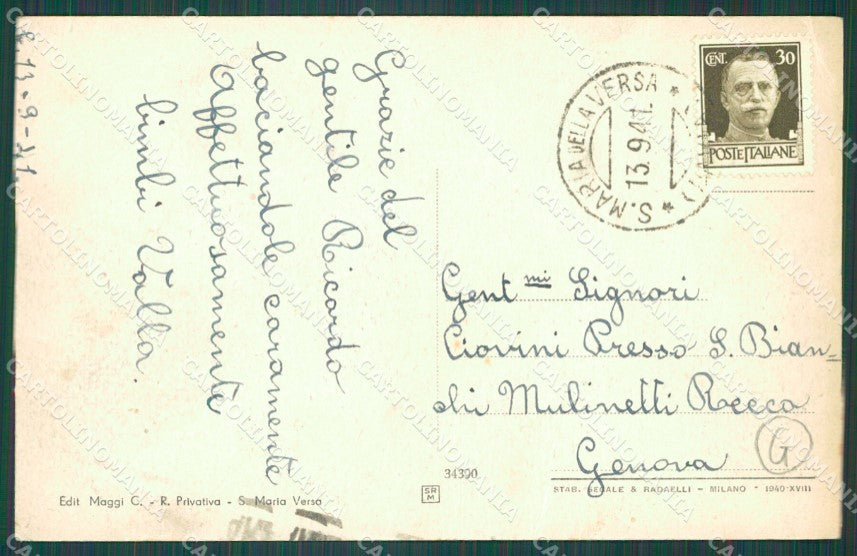 13-9-41
Grazie del
gentile Ricordo
baciandole caramente
Affettuosamente
bimbi Valla.
S. MARIA DELLA VERSA
13.9.41.
CENT. 30
POSTE ITALIANE
Gent mi Signori
Ciovini Presso S. Bian=
chi Mulinetti Recco
Genova
G
34390
SR
M
STAB. GEGALE & RADAELLI - MILANO - 1940-XVIII
Edit Maggi C. - R. Privativa - S. Maria Versa
CARTOLINOMANIA